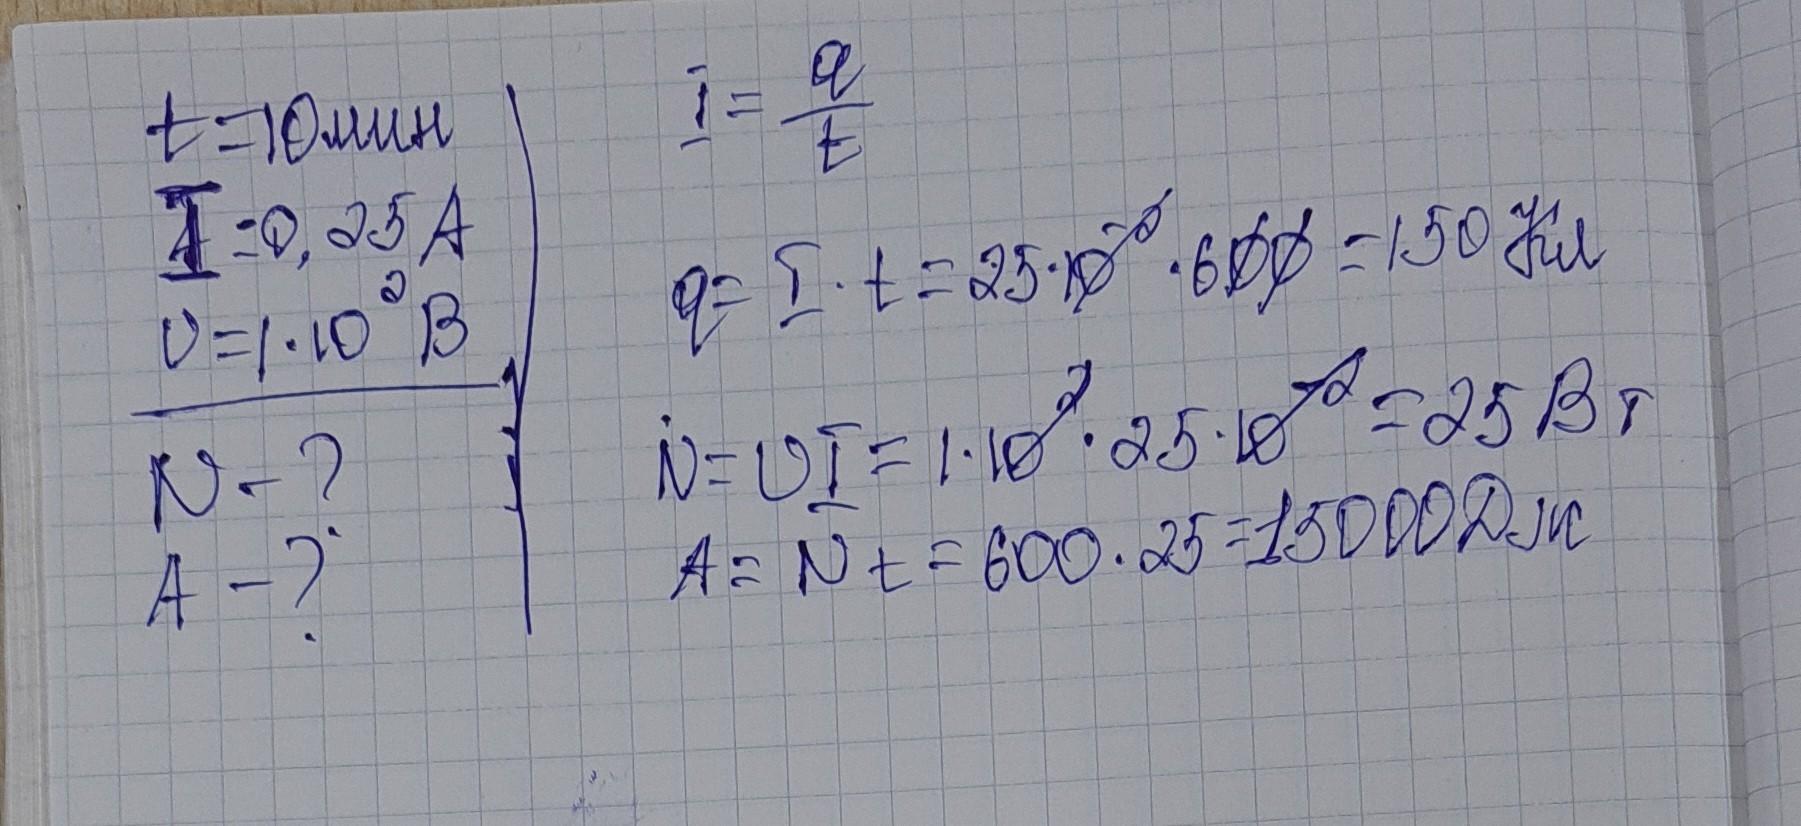 t=10мин
I=0,25А
U=1·10² В
N-?
A-?
I = q/t
q= I·t=25·10⁻²·600=150 Кл
N=UI=1·10²·25·10⁻²=25Вт
A=Nt=600·25=15000Дж